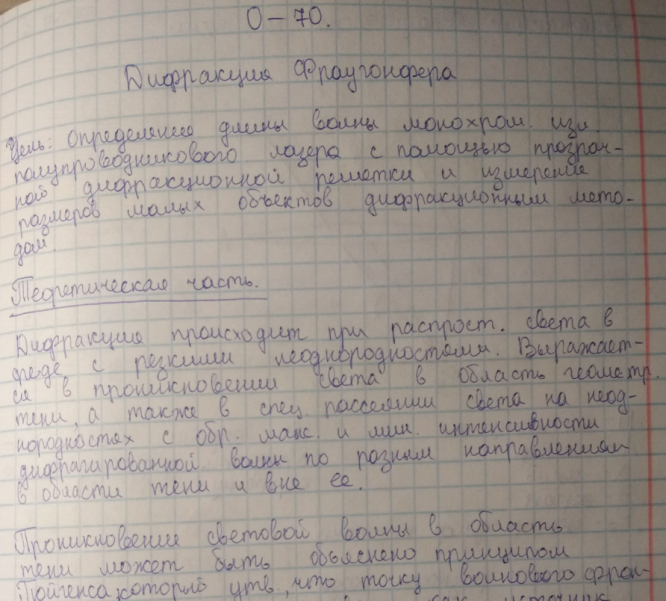 О – 70.
Дифракция Фраугонфера
Цель: определение длины волны монохром. изл.
полупроводникового лазера с помощью прозрач-
ной дифракционной решетки и измерение
размеров малых объектов дифракционным мето-
дом.
Теоретическая часть.
Дифракция происходит при распрост. света в
среде с резкими неоднородностями. Выражает-
ся в проникновении света в область геометр.
тени, а также в спец. рассеянии света на неод-
нородностях с обр. макс. и мин. интенсивности
дифрагированной волны по разным направлениям
в области тени и вне ее.
Проникновение световой волны в область
тени может быть объяснено принципом
Гюйгенса, который утв., что точку волнового фрон-
как источник